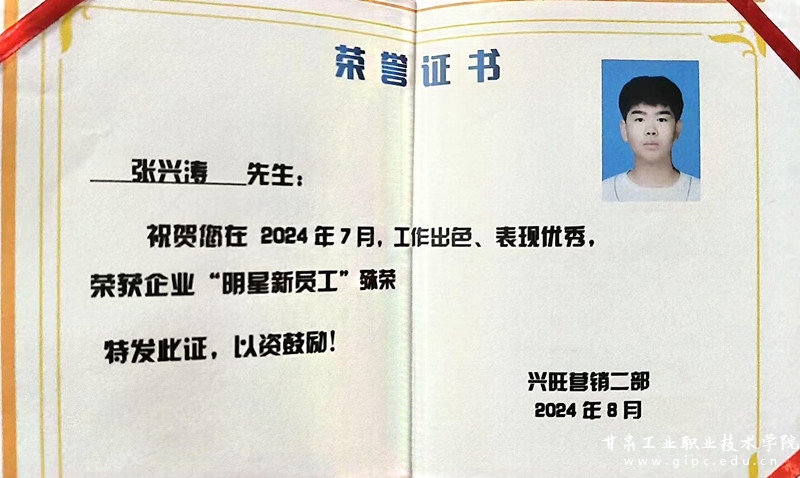 荣誉证书
张兴涛 先生：
祝贺您在 2024 年 7 月，工作出色、表现优秀，
荣获企业“明星新员工”殊荣
特发此证，以资鼓励！
兴旺营销二部
2024 年 8 月
甘肃工业职业技术学院
www.gipc.edu.cn